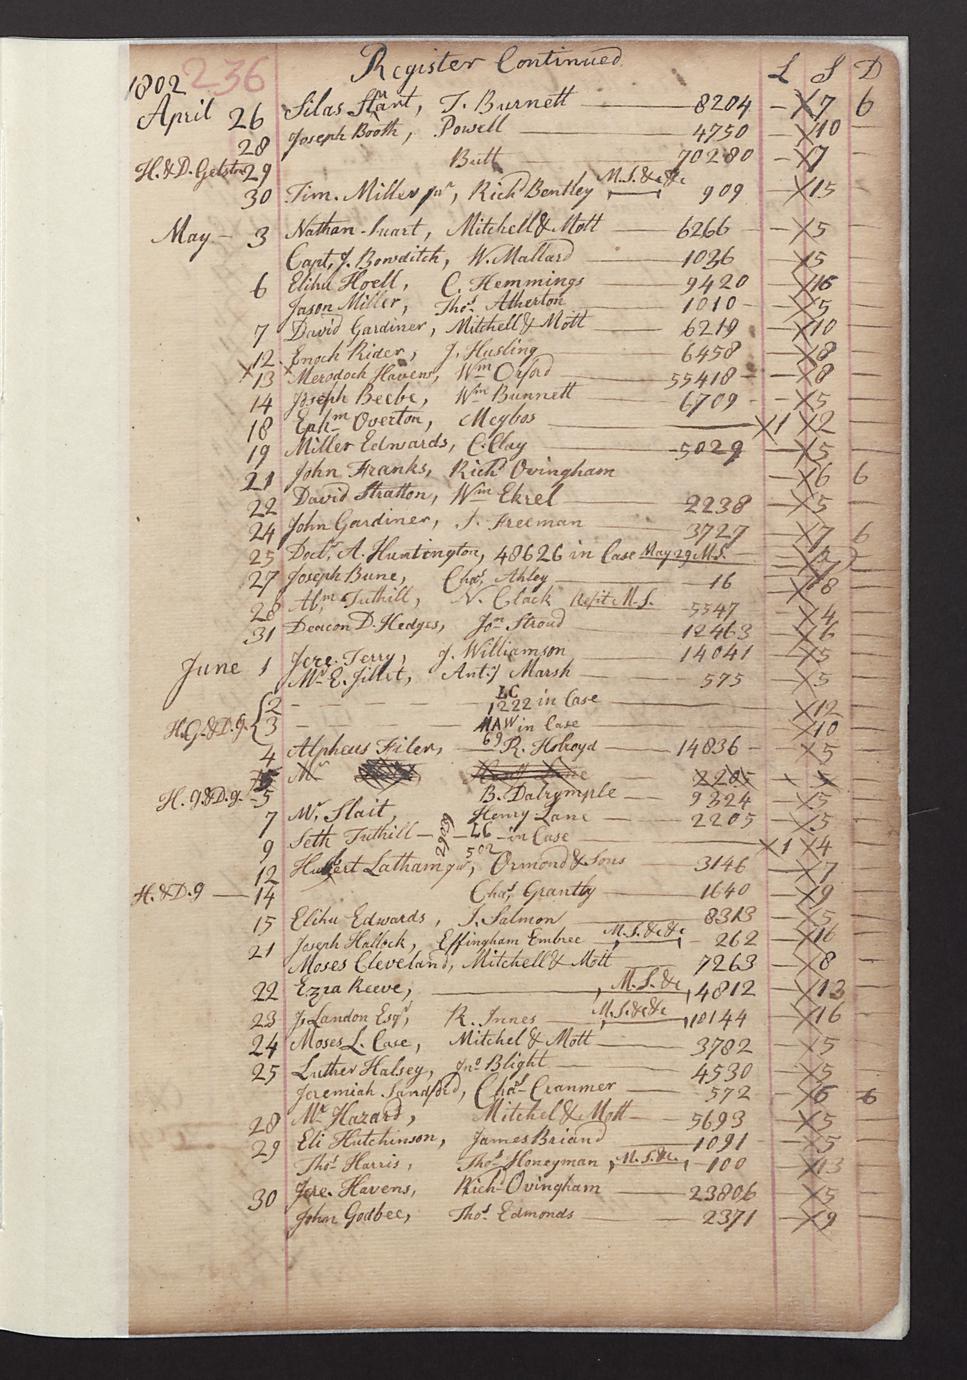 1802 236 Register Continued L S D
April 26 Silas Start, T. Burnett 8204 7 6
28 Joseph Booth, Powell 4750 10
H. & D. Gelston 29 Butt 70280 7
30 Tim. Miller junr, Richd Bentley M.S.&c&c 909 15
May 3 Nathan Suart, Mitchell & Mott 6266 5
Capt. J. Bowditch, W. Mallard 1036 5
6 Elihu Hoell, C. Hemmings 9420 16
Jason Miller, Thos. Atherton 1010 5
7 David Gardiner, Mitchell & Mott 6219 10
12 Enoch Rider, J. Husling 6458 8
X 13 Merodoch Havens, Wm Orford 55418 8
14 Joseph Beebe, Wm Bunnett 6709 5
18 Ephm Overton, Megbos 1 2
19 Miller Edwards, C. Clay 5029 5
21 John Franks, Richd Ovingham 6 6
22 David Stratton, Wm Ekrel 2238 5
24 John Gardiner, J. Freeman 3727 7 6
25 Doctr A. Huntington, 48626 in Case May 29 M.S.
27 Joseph Bune, Chas. Ahley 16 18
28 Abm Tuthill, N. Clack Refit M.S. 5547 4
31 Deacon D. Hedges, Jon Stroud 12463 6
June 1 Jere. Terry, J. Williamson 14041 5
Mr E. Jillet, Anty Marsh 575 5
2 LC 1222 in Case 12
H.G.&D.g. 3 MAW 69 in Case 10
4 Alpheus Filer, R. Holroyd 14836 5
5 Mr 2205 5
H.g&D.g. 5 B. Dalrymple 9324 5
7 Mr. Slait, Henry Lane 2205 5
9 Seth Tuthill 29239 LC 502 in Case 1 4
12 Hubert Latham jur, Ormond & Sons 3146 7
H.&D.g 14 Chas. Grantby 1640 9
15 Elihu Edwards, J. Salmon 8313 5
21 Joseph Hallock, Effingham Embree M.S.&c&c 262 16
Moses Cleveland, Mitchell & Mott 7263 8
22 Ezra Reeve, M.S.&c 4812 13
23 J. Landon Esqr, R. Innes M.S.&c&c 10144 16
24 Moses L. Case, Mitchel & Mott 3782 5
25 Luther Halsey, Jno Blight 4530 5
Jeremiah Sandford, Chas. Cranmer 572 6 6
28 Mr Hazard, Mitchel & Mott 5693 5
29 Eli Hutchinson, James Briand 1091 5
Thos. Harris, Thos. Honeyman M.S.&c. 100 13
30 Jere. Havens, Richd Ovingham 23806 5
John Godbee, Thos. Edmonds 2371 9